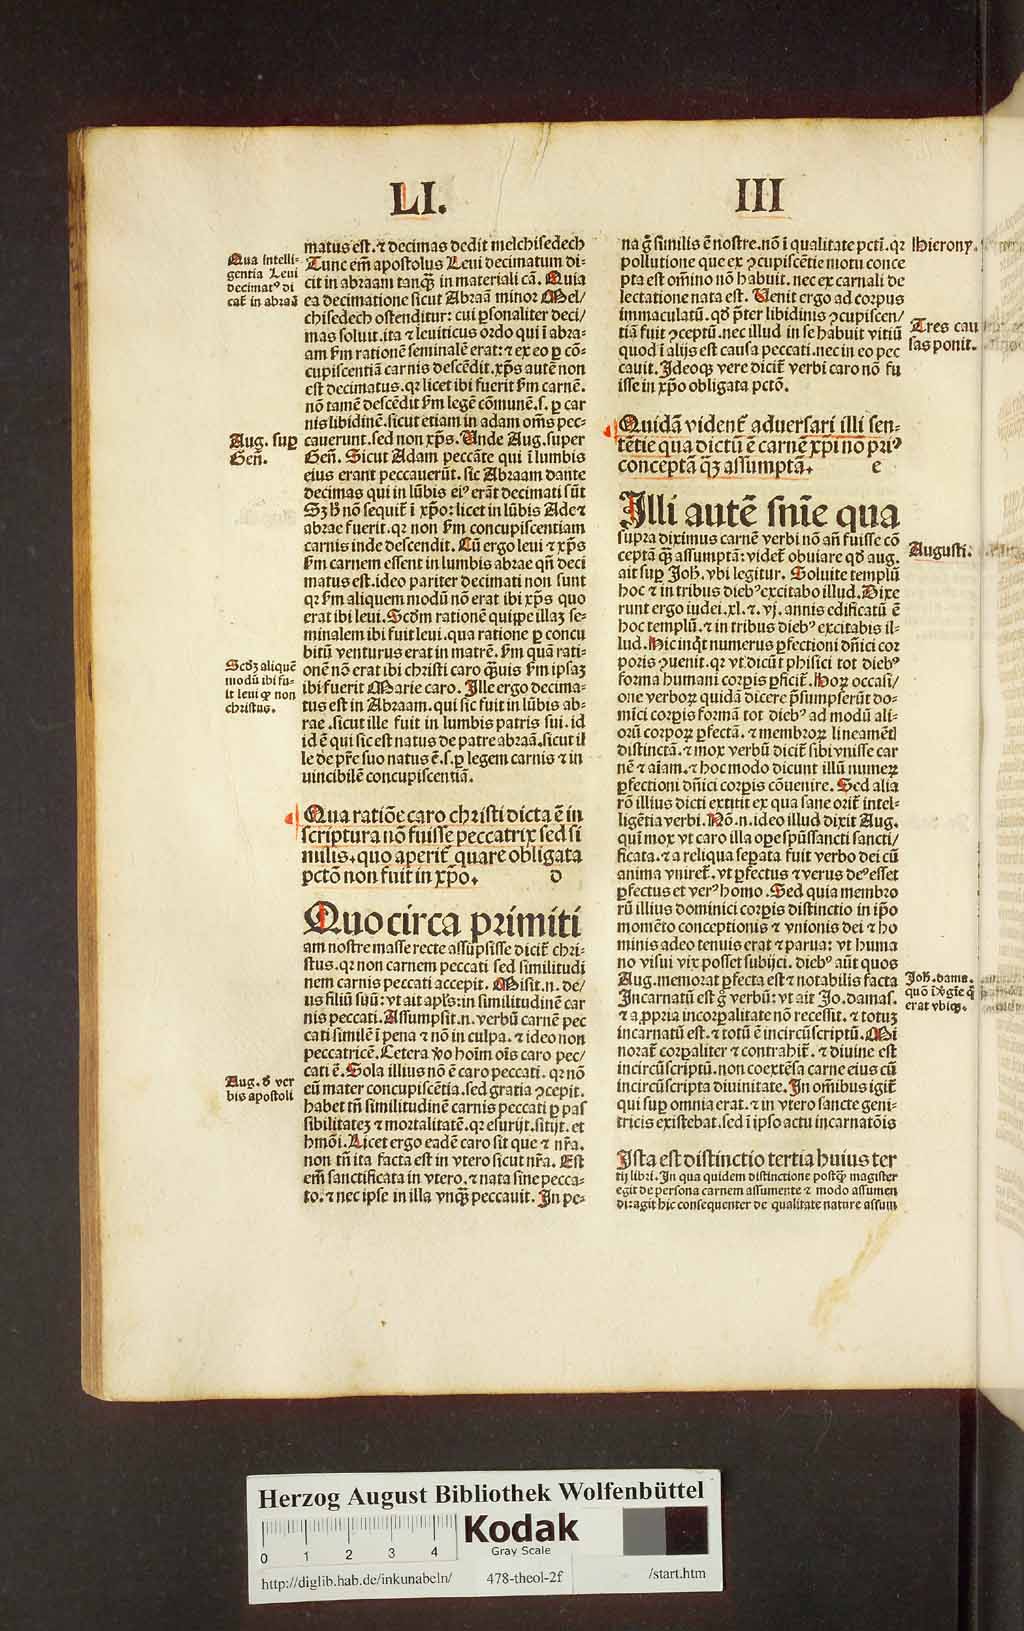 LI.
III
matus est. ⁊ decimas dedit melchisedech
Tunc em̄ apostolus Leui decimatum di-
cit in abraam tanq̄ȝ in materiali cā. Quia
ea decimatione sicut Abraā minor Mel/
chisedech ostenditur: cui ꝑsonaliter deci/
mas soluit. ita ⁊ leuiticus ordo qui ī abra-
am s̄m rationē seminalē erat: ⁊ ex eo ꝑ cō-
cupiscentiā carnis descēdit. xp̄s autē non
est decimatus. qꝛ licet ibi fuerit s̄m carnē.
nō tamē descēdit s̄m legē cōmunē. s. ꝑ car
nis libidinē. sicut etiam in adam om̄s pec-
cauerunt. sed non xp̄s. Unde Aug. super
Geñ. Sicut Adam peccāte qui ī lumbis
eius erant peccauerūt. sic Abraam dante
decimas qui in lūbis eiꝰ erāt decimati sūt
Sȝ h̄ nō sequit̄ ī xp̄o: licet in lūbis Ade ⁊
abrae fuerit. qꝛ non s̄m concupiscentiam
carnis inde descendit. Cū ergo leui ⁊ xp̄s
s̄m carnem essent in lumbis abrae qn̄ deci
matus est. ideo pariter decimati non sunt
qꝛ s̄m aliquem modū nō erat ibi xp̄s quo
erat ibi leui. Scdm rationē quippe illaȝ se-
minalem ibi fuit leui. qua ratione ꝑ concu
bitū venturus erat in matrē. s̄m quā rati-
onē nō erat ibi christi caro q̄uis s̄m ipsaȝ
ibi fuerit Marie caro. Ille ergo decima-
tus est in Abraam. qui sic fuit in lūbis ab-
rae. sicut ille fuit in lumbis patris sui. id
id ē qui sic est natus de patre abraā. sicut il
le de pr̄e suo natus ē. s. ꝑ legem carnis ⁊ in
uincibilē concupiscentiā.
Qua ratiōe caro christi dicta ē in
scriptura nō fuisse peccatrix sed si
milis. quo aperit̄ quare obligata
pctō non fuit in xp̄o. d
Quocirca primiti
am nostre masse recte assūpsisse dicit̄ chri-
stus. qꝛ non carnem peccati sed similitudi
nem carnis peccati accepit. Misit. n. de/
us filiū suū: vt ait apl̄s: in similitudinē car
nis peccati. Assumpsit. n. verbū carnē pec
cati similē ī pena ⁊ nō in culpa. ⁊ ideo non
peccatricē. Cetera v̄o hoīm oīs caro pec/
cati ē. Sola illius nō ē caro peccati. qꝛ nō
eū mater concupiscētia. sed gratia ↄcepit.
habet tn̄ similitudinē carnis peccati ꝑ pas
sibilitateȝ ⁊ mortalitatē. qꝛ esurijt. sitijt. et
hmōi. Licet ergo eadē caro sit que ⁊ nr̄a.
non tn̄ ita facta est in vtero sicut nr̄a. Est
em̄ sanctificata in vtero. ⁊ nata sine pecca-
to. ⁊ nec ipse in illa vnq̄ȝ peccauit. In pe-
Qua intelli-
gentia Leui
decimatꝰ di
cat̄ in abraā
Aug. suꝑ
Geñ.
Scdȝ aliquē
modū ibi fu-
it leui qꝫ non
christus.
Aug. d̄ ver
bis apostoli
na ḡ similis ē nostre. nō ī qualitate pcti. qꝛ
pollutione que ex ↄcupiscētie motu conce
pta est om̄ino nō habuit. nec ex carnali de
lectatione nata est. Uenit ergo ad corpus
immaculatū. qd̄ p̄ter libidinis ↄcupiscen/
tiā fuit ↄceptū. nec illud in se habuit vitiū
quod ī alijs est causa peccati. nec in eo pec
cauit. Ideoqꝫ vere dicit̄ verbi caro nō fu
isse in xp̄o obligata pctō.
Quidā vident̄ aduersari illi sen-
tētie qua dictū ē carnē xp̄i nō priꝰ
conceptā qȝ assumptā. e
Illi autē sn̄ie qua
supra diximus carnē verbi nō an̄ fuisse cō
ceptā q̄ȝ assumptā: videt̄ obuiare qd̄ aug.
ait suꝑ Joh̄. vbi legitur. Soluite templū
hoc ⁊ in tribus diebꝰ excitabo illud. Dixe
runt ergo iudei. xl. ⁊. vj. annis edificatū ē
hoc templū. ⁊ in tribus diebꝰ excitabis il-
lud. Hic inqt̄ numerus ꝑfectioni dn̄ici cor
poris ↄuenit. qꝛ vt dicūt phisici tot diebꝰ
forma humani corꝑis ꝑficit̄. Hoꝝ occasi/
one verboꝝ quidā dicere p̄sumpserūt do-
mīci corꝑis formā tot diebꝰ ad modū ali-
orū corpoꝝ ꝑfectā. ⁊ membroꝝ lineamētl
distinctā. ⁊ mox verbū dicit̄ sibi vnisse car
nē ⁊ aīam. ⁊ hoc modo dicunt illū numeꝝ
ꝑfectioni dn̄ici corꝑis cōuenire. Sed alia
rō illius dicti extitit ex qua sane orit̄ intel-
ligētia verbi. Nō. n. ideo illud dixit Aug.
quī mox vt caro illa ope sp̄ussancti sancti/
ficata. ⁊ a reliqua seꝑata fuit verbo dei cū
anima vniret̄. vt ꝑfectus ⁊ verus deꝰ esset
ꝑfectus et verꝰ homo. Sed quia membro
rū illius dominici corꝑis distinctio in ip̄o
momēto conceptionis ⁊ vnionis dei ⁊ ho
minis adeo tenuis erat ⁊ parua: vt huma
no visui vix posset subijci. diebꝰ aūt quos
Aug. memorat ꝑfecta est ⁊ notabilis facta
Incarnatū est ḡ verbū: vt ait Jo. damas.
⁊ a ꝓpria incorꝑalitate nō recessit. ⁊ totuȝ
incarnatū est. ⁊ totū ē incircūscriptū. Mi
norat̄ corꝑaliter ⁊ contrahit̄. ⁊ diuine est
incircūscriptū. non coextēsa carne eius cū
incircūscripta diuinitate. In om̄ibus igit̄
qui suꝑ omnia erat. ⁊ in vtero sancte geni-
tricis existebat. sed ī ipso actu incarnatōis
Ista est distinctio tertia huius ter
tij libri. In qua quidem distinctione postq̄ȝ magister
egit de persona carnem assumente ⁊ modo assumen
di: agit hic consequenter de qualitate nature assum
Hieronȳ.
Tres cau
sas ponit.
Augusti.
Joh̄. dama.
erat vbiqꝫ.
Herzog August Bibliothek Wolfenbüttel
0 1 2 3 4
Kodak
Gray Scale
http://diglib.hab.de/inkunabeln/ 478-theol-2f /start.htm